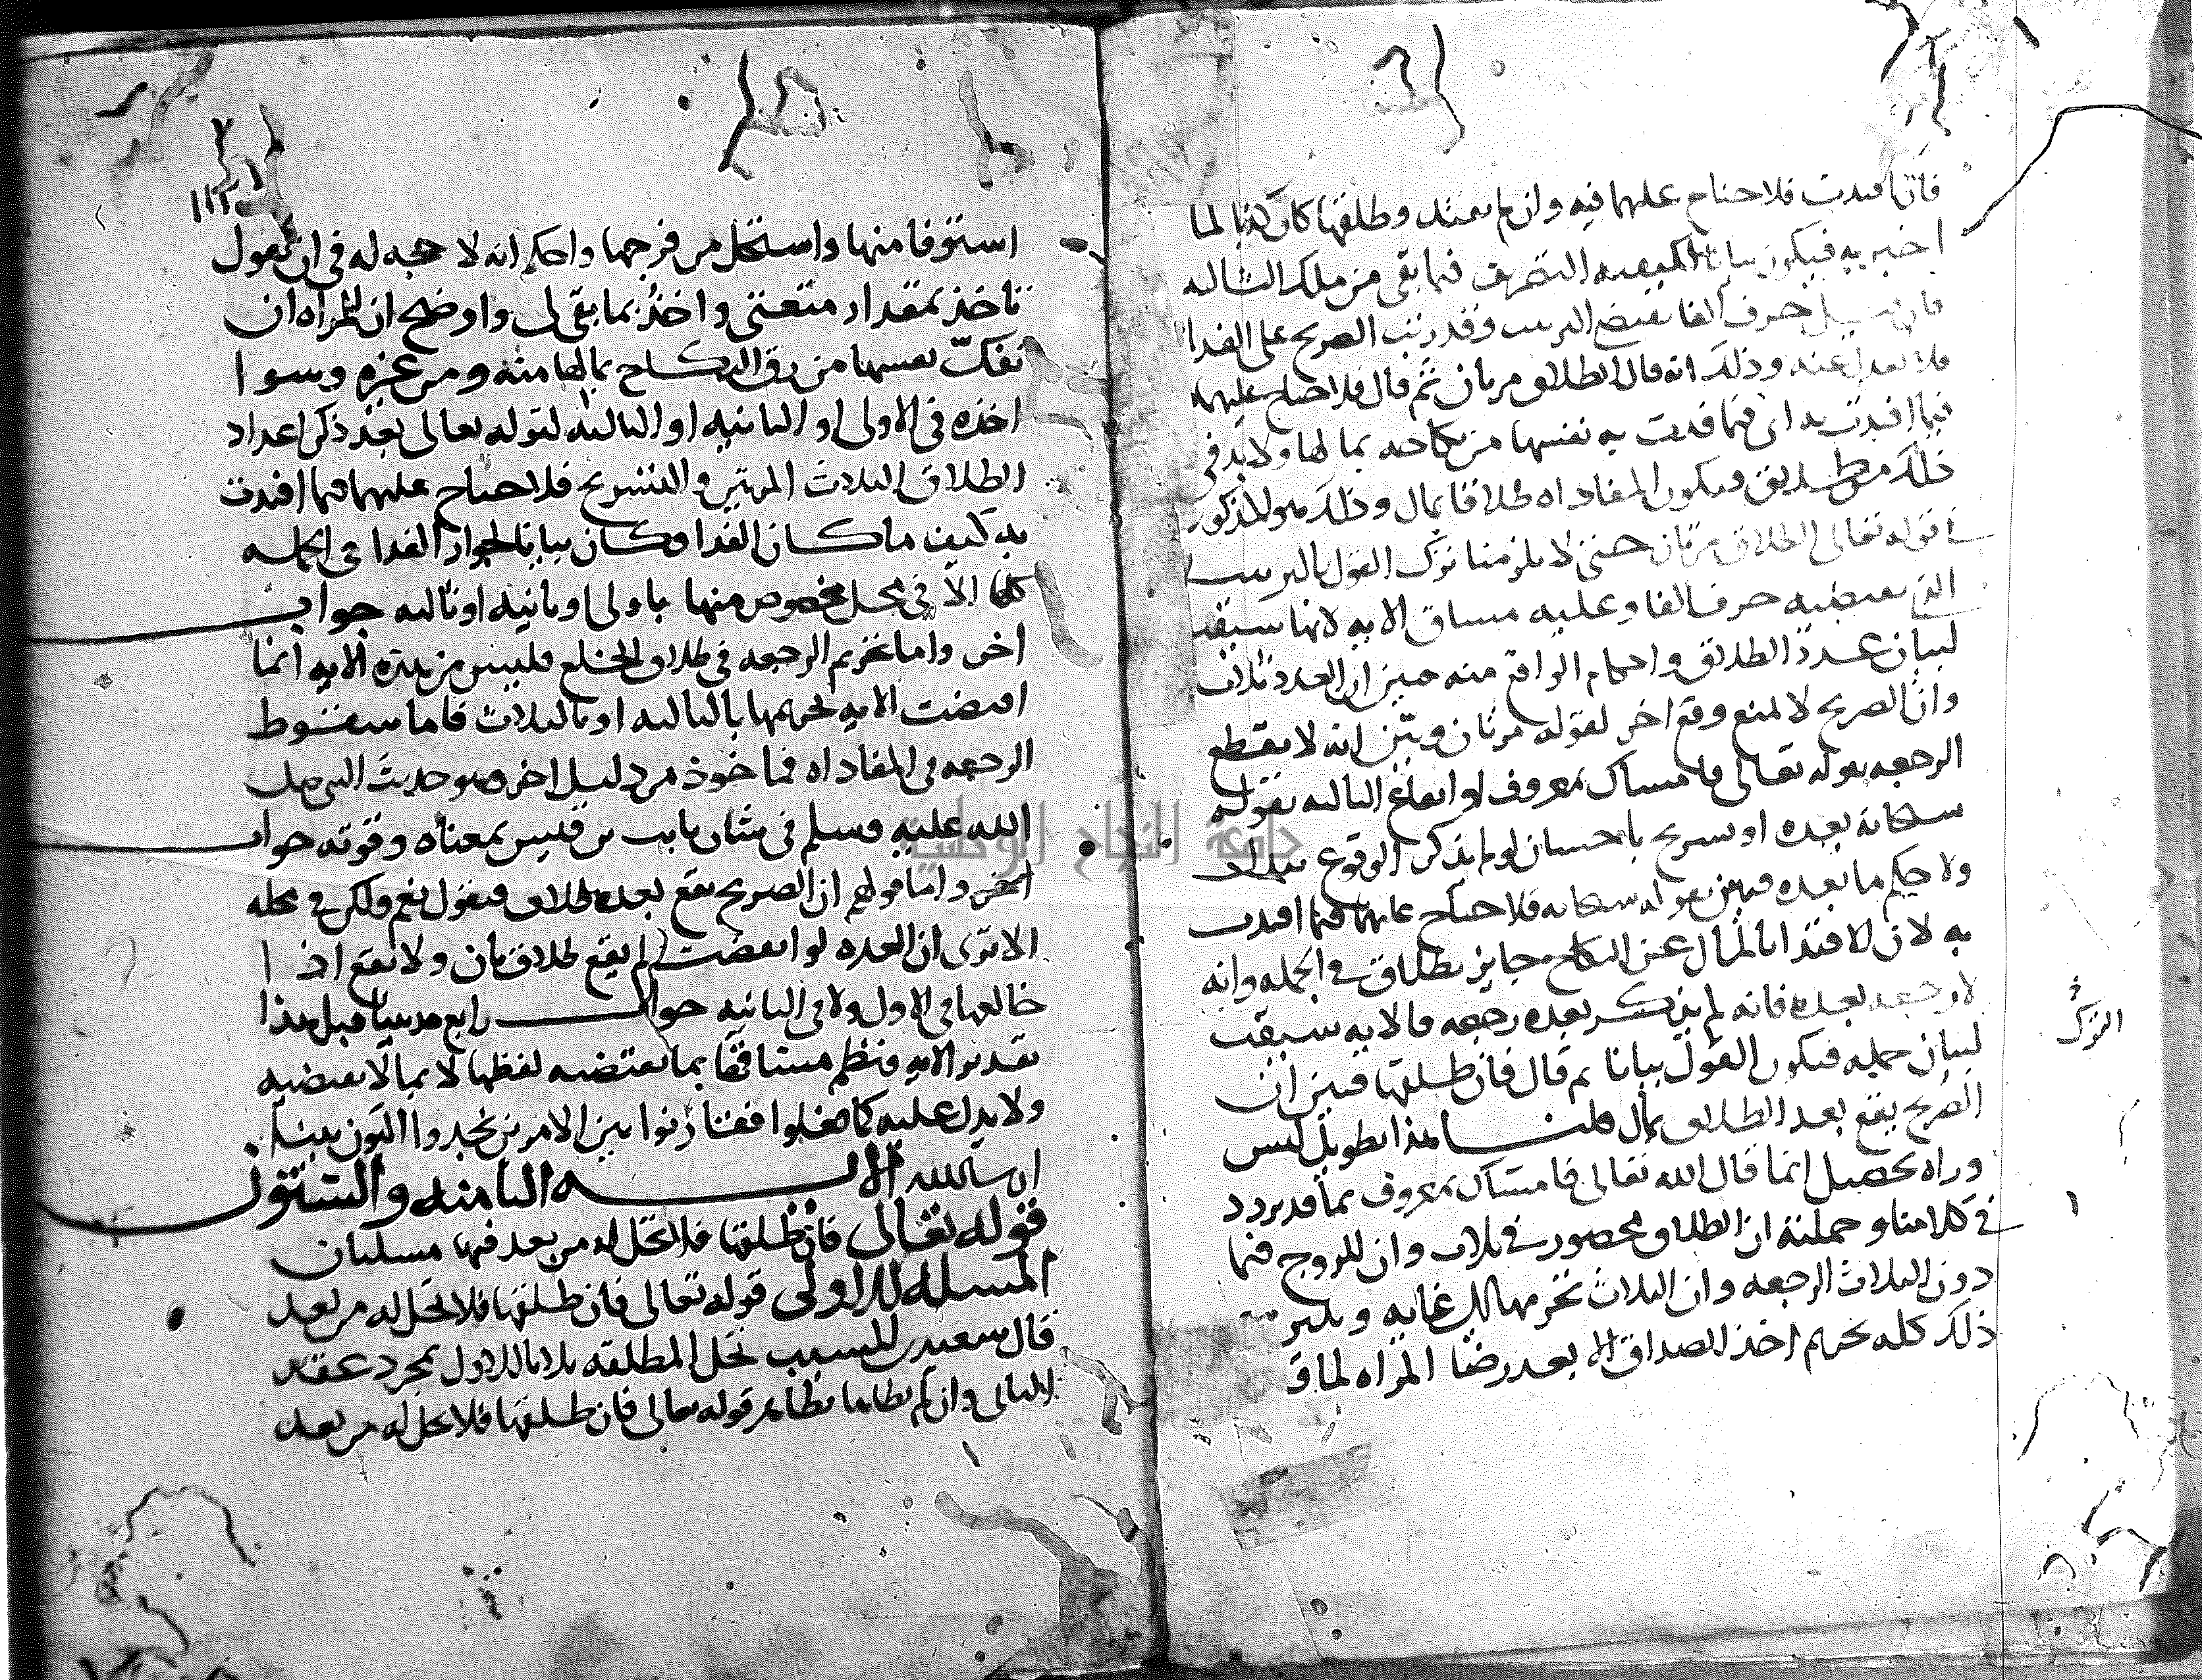 فان افتدت فلا جناح عليهما فيه وان لم يفتد وطلقها كان لما
اخبر به فيكون بيانا لكيفيه التصرف فيما بقي من ملك الثالثه
فان قيل حرف الفا يقتضي الترتيب وقد رتب الصريح على الفدا
فلا يعدل عنه وذلك انه قال الطلاق مرتان ثم قال فلا جناح عليهما
فيما افتدت به اي فيما فدت به نفسها من نكاحه بما لها ولا بد في
ذلك من طريق فيكون المفاداه طلاقا بمال وذلك هو المذكور
في قوله تعالى الطلاق مرتان حتى لا يلزمنا ترك القول بالترتيب
الذي يقتضيه حرف الفا وعليه مساق الايه لانها سيقت
لبيان عدد الطلاق واحكام الواقع منه فبين ان العدد ثلاث
وان الصريح لا يمنع وقع اخر لقوله مرتان وبين انه لا يقطع
الرجعه بقوله تعالى فامساك بمعروف او ايقاع الثالثه بقوله
سبحانه بعده او تسريح باحسان لو لم يذكر الوقوع ببدل
ولا حكم ما بعده فبين بقوله سبحانه فلا جناح عليهما فيما افتدت
به لان الافتدا بالمال عن النكاح جايز بطلاق في الجمله وانه
لا رجعه بعده فانه لم يذكر بعده رجعه فالايه سيقت
لبيان جمله فيكون القول بيانا ثم قال فان طلقها فبين ان
الصريح يقع بعد الطلاق بمال قلنا هذا تطويل ليس
وراه تحصيل انما قال الله تعالى فامساك بمعروف بما قد تردد
في كلامنا وجملته ان الطلاق محصور في ثلاث وان للزوج فيما
دون الثلاث الرجعه وان الثلاث تحرمها الى غايه وبين
ذلك كله تحريم اخذ الصداق الا بعد رضا المراه لما قد
الترك
١١٢
استوفا منها واستحل من فرجها واحكم انه لا حجه له في ان يقول
تاخذ بمقدار متعتي واخذ بما بقي لي واوضح ان للمراه ان
تفك نفسها من رق النكاح بمالها منه ومن غيره وسوا
اخذه في الاولى او الثانيه او الثالثه لقوله تعالى بعد ذكر اعداد
الطلاق الثلاث المرتين والتسريح فلا جناح عليهما فيما افتدت
به كيف ما كان الفدا وكان بيانا لجواز الفدا في الجمله
كلها لا في محل مخصوص منها باولى او ثانيه او ثالثه جواب
اخر واما تحريم الرجعه في طلاق الخلع فليس من هذه الايه انما
اقتضت الايه تحريمها بالثالثه او بالثلاث فاما سقوط
الرجعه في المفاداه فماخوذ من دليل اخر وهو حديث النبي صلى
الله عليه وسلم في شان ثابت بن قيس بمعناه وقوته جواب
اخر واما قولهم ان الصريح يقع بعده طلاق فنقول نعم ولكن في محله
الا ترى ان العده لو انقضت لم يقع طلاق ثان ولا يقع اذا
خالعها في الاول ولا في الثانيه جواب رابع هو بينا قبل هذا
تقدير الايه ونظم مساقها بما يقتضيه لفظها لا بما لا يقتضيه
ولا يدل عليه كما فعلوا فقارنوا بين الامرين تجدوا البون بينا
ان شا الله الايه الثامنه والستون
قوله تعالى فان طلقها فلا تحل له من بعد فيها مسلتان
المسله الاولى قوله تعالى فان طلقها فلا تحل له من بعد
قال سعيد بن المسيب تحل المطلقه ثلاثا للاول بمجرد عقد
الثاني وان لم يطاها بظاهر قوله تعالى فان طلقها فلا تحل له من بعد